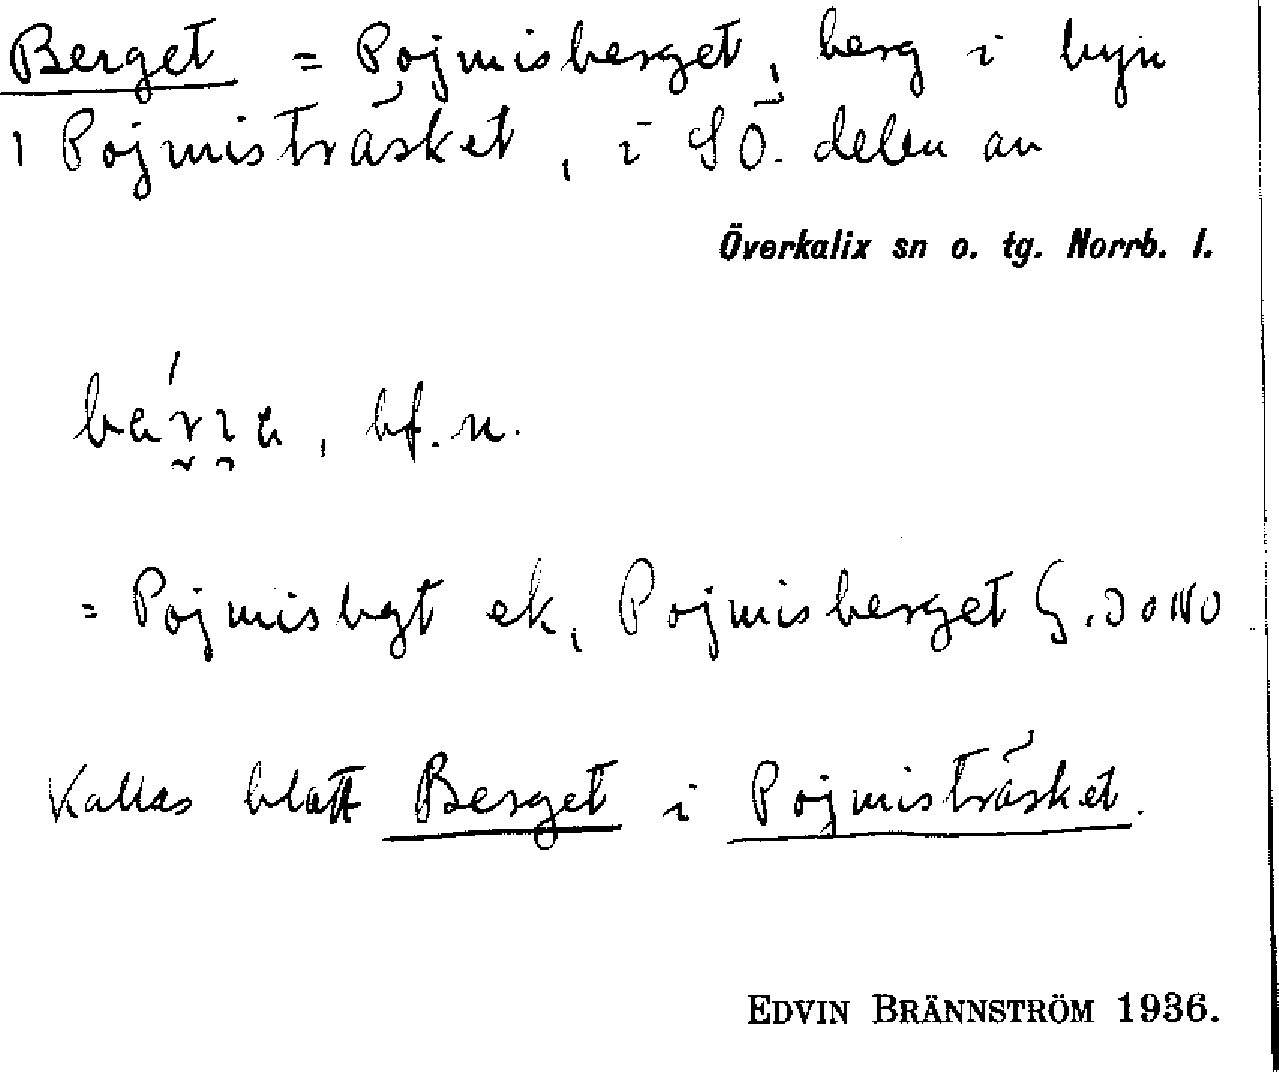 Berget = Pojmisberget, berg i byn
i Pojmisträsket, i SÖ. delen av
Överkalix sn o. tg. Norrb. l.
, bf. n.
= Pojmisbgt ek, Pojmisberget G.
Kallas blott Berget i Pojmisträsket.
EDVIN BRÄNNSTRÖM 1936.